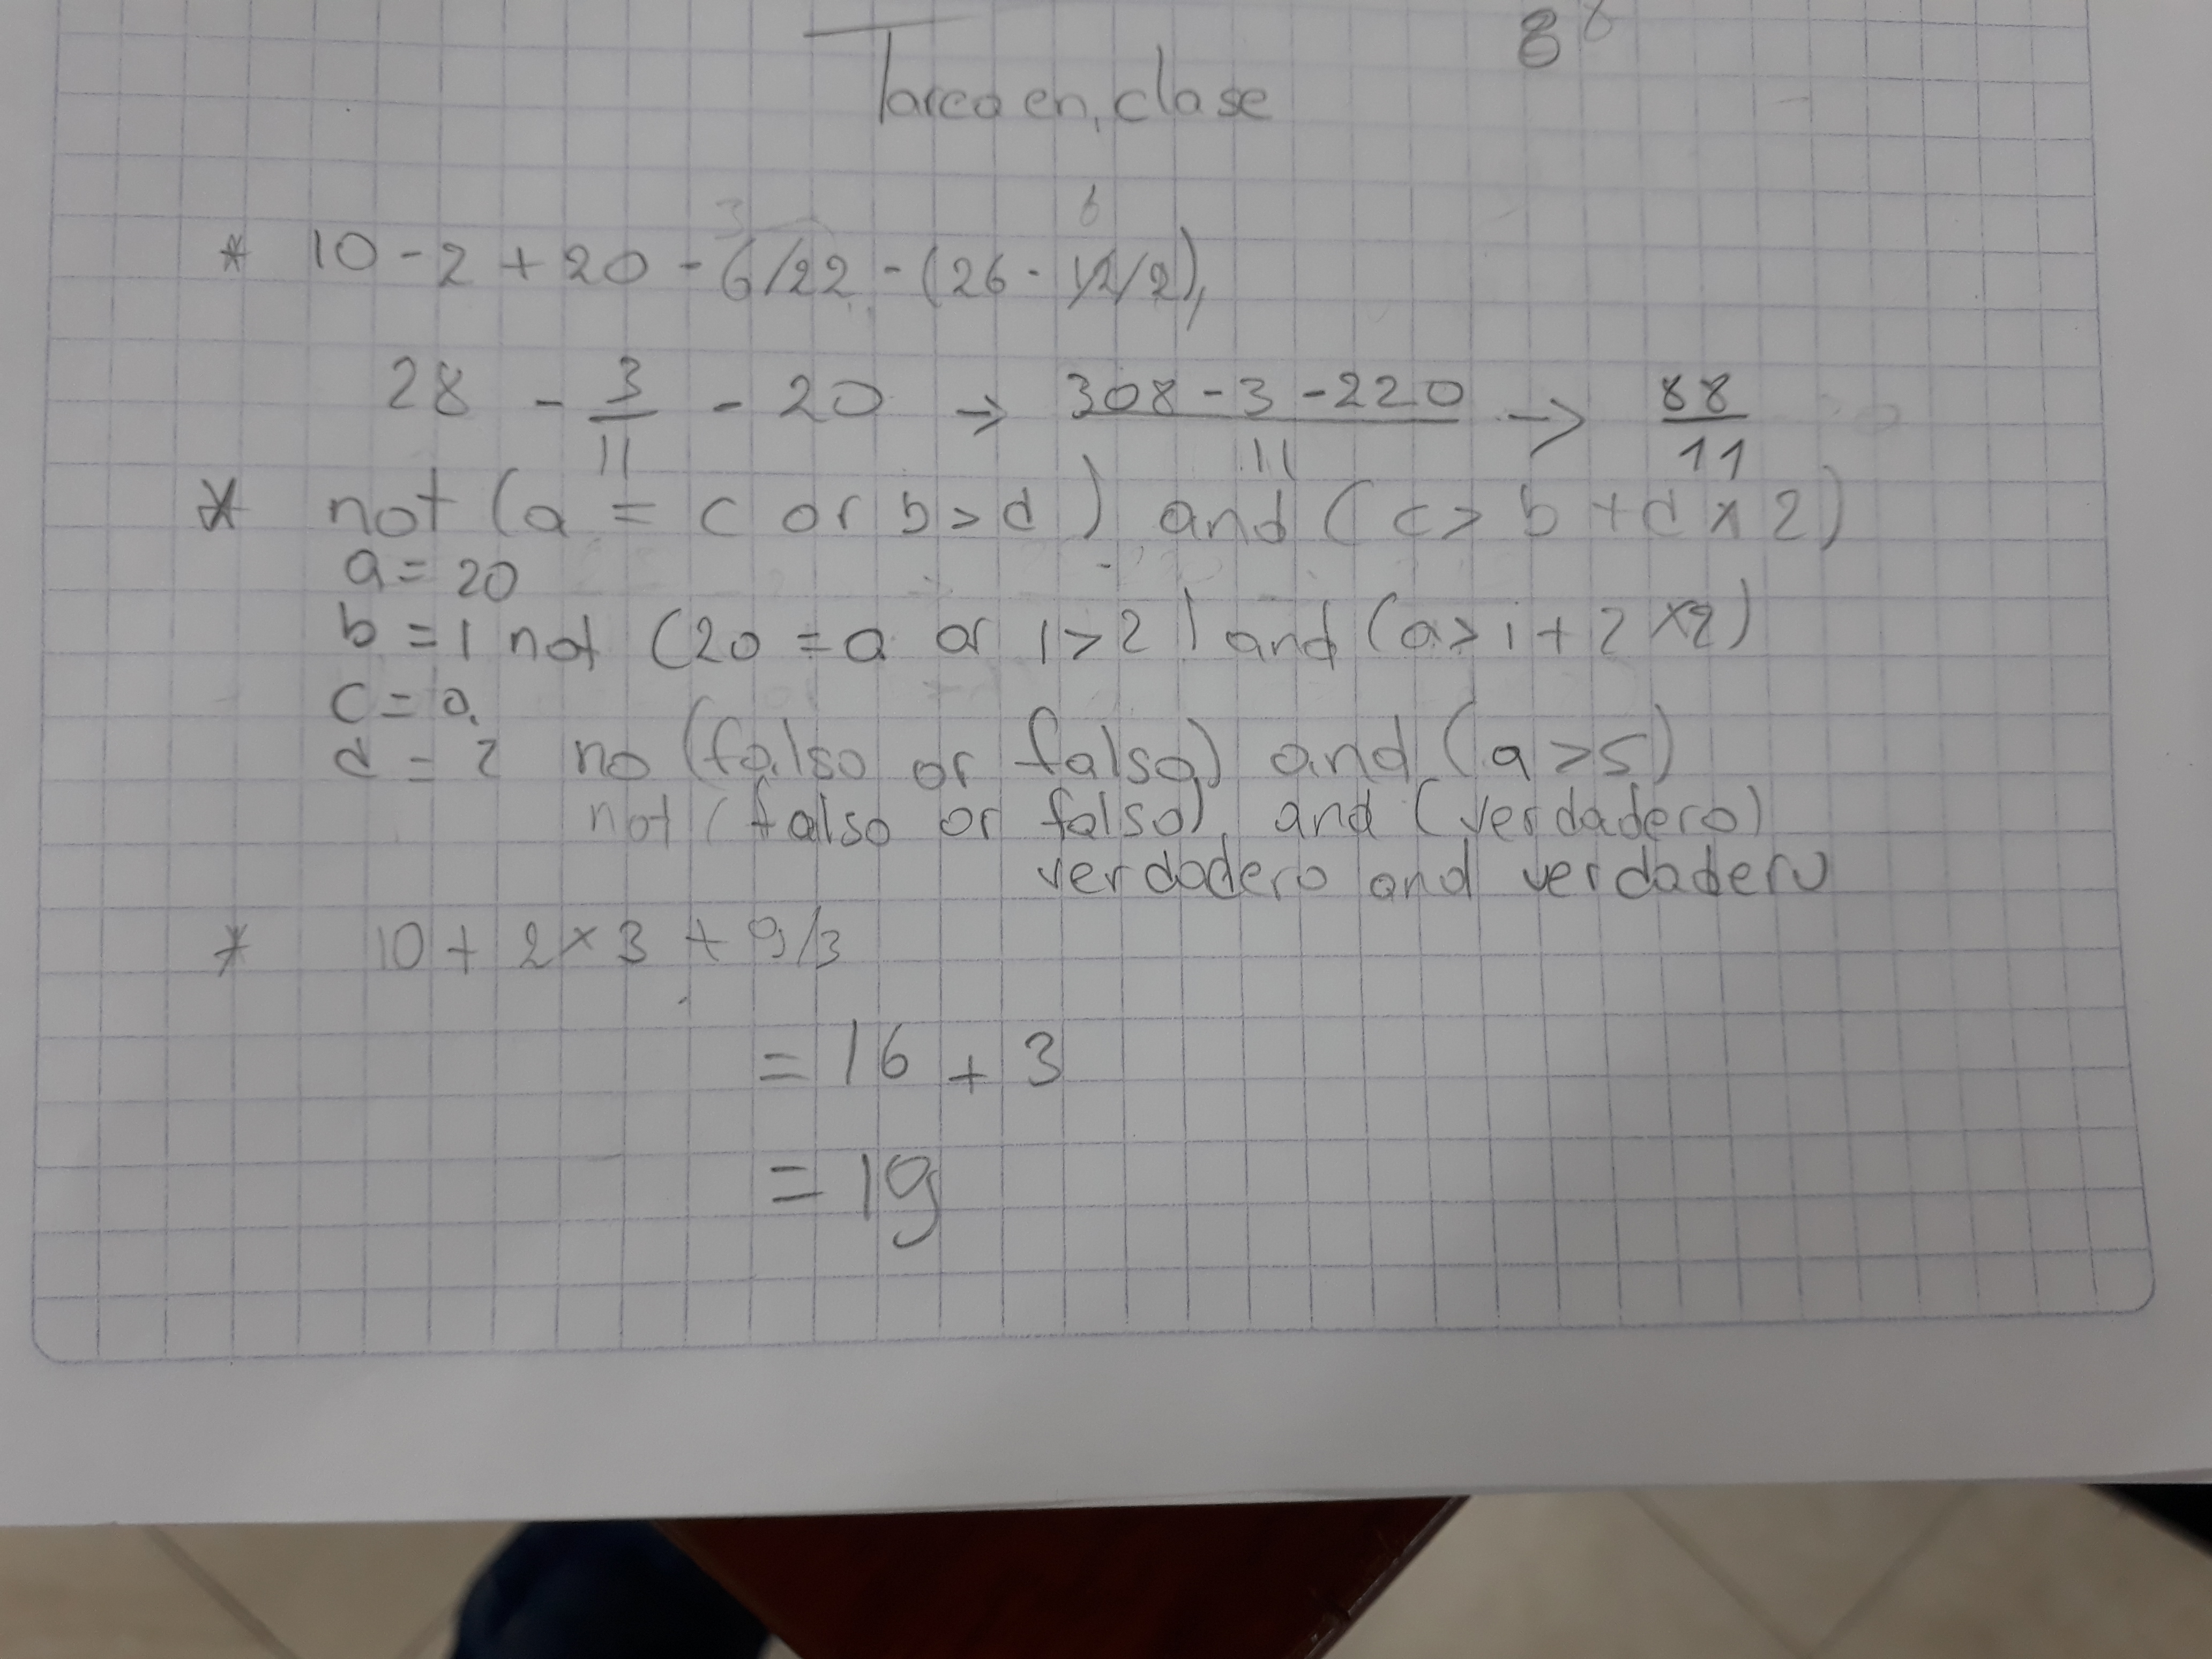 8
Tarea en clase
* 10 - 2 + 20 - 6/22 - (26 - 12/2)
28 - 3/11 - 20 → 308 - 3 - 220 / 11 → 88/11
* not (a = c or b > d) and (c > b + d x 2)
a = 20
b = 1 not (20 = a or 1 > 2) and (a > 1 + 2 x 2)
c = a
d = 2 no (falso or falso) and (9 > 5)
not (falso or falso) and (verdadero)
verdadero and verdadero
* 10 + 2 x 3 + 9/3
= 16 + 3
= 19